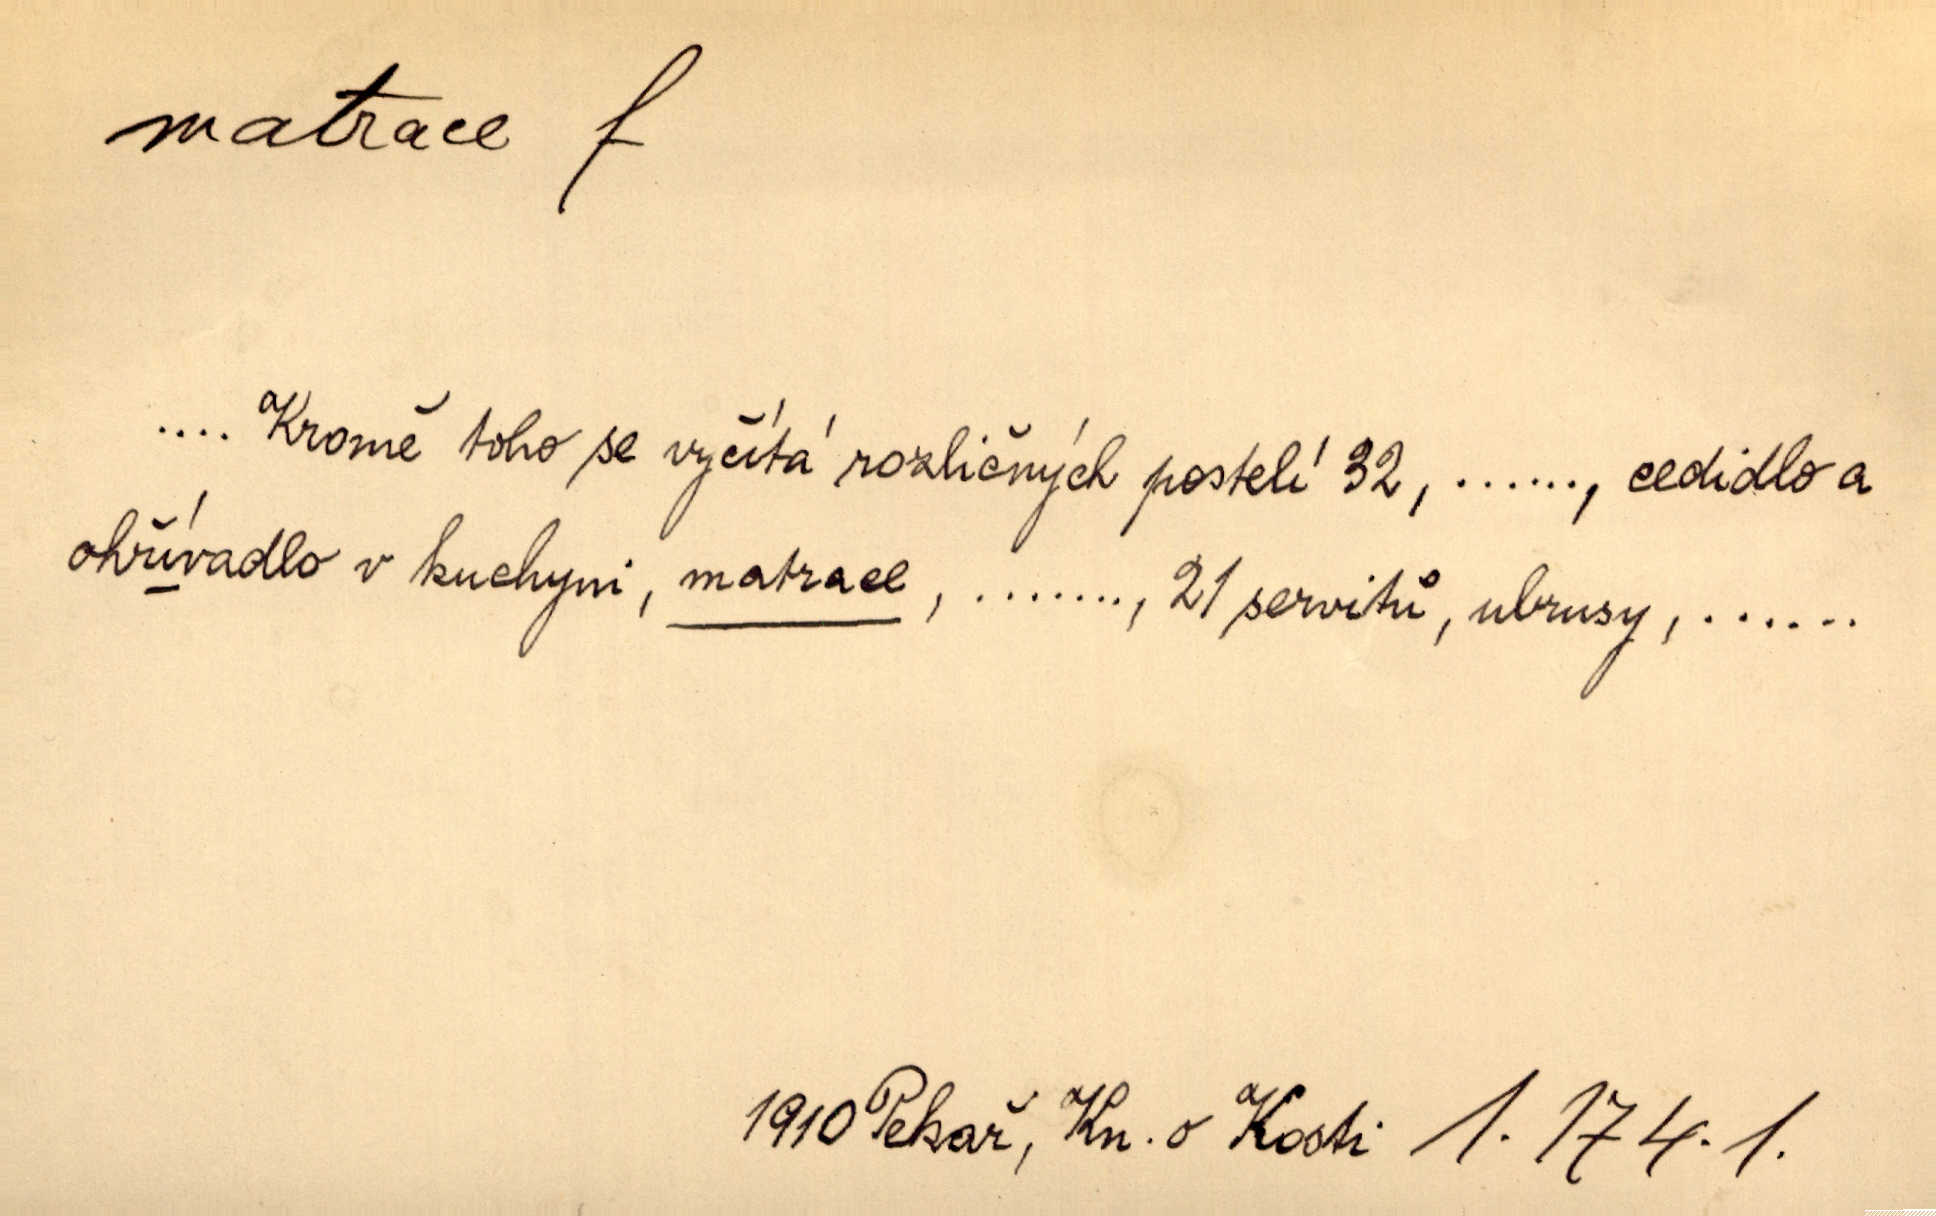 matrace f
.... Kromě toho se vyčítá rozličných postelí 32, ......., cedidlo a
ohřívadlo v kuchyni, matrace, ........, 21 servitů, ubrusy, .......
1910 Pekař, Kn. o Kosti 1. 174. 1.